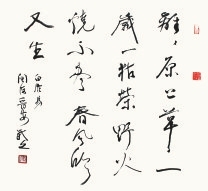 離々原上草一
歲一枯榮野火
燒不盡春風吹
又生
白居易